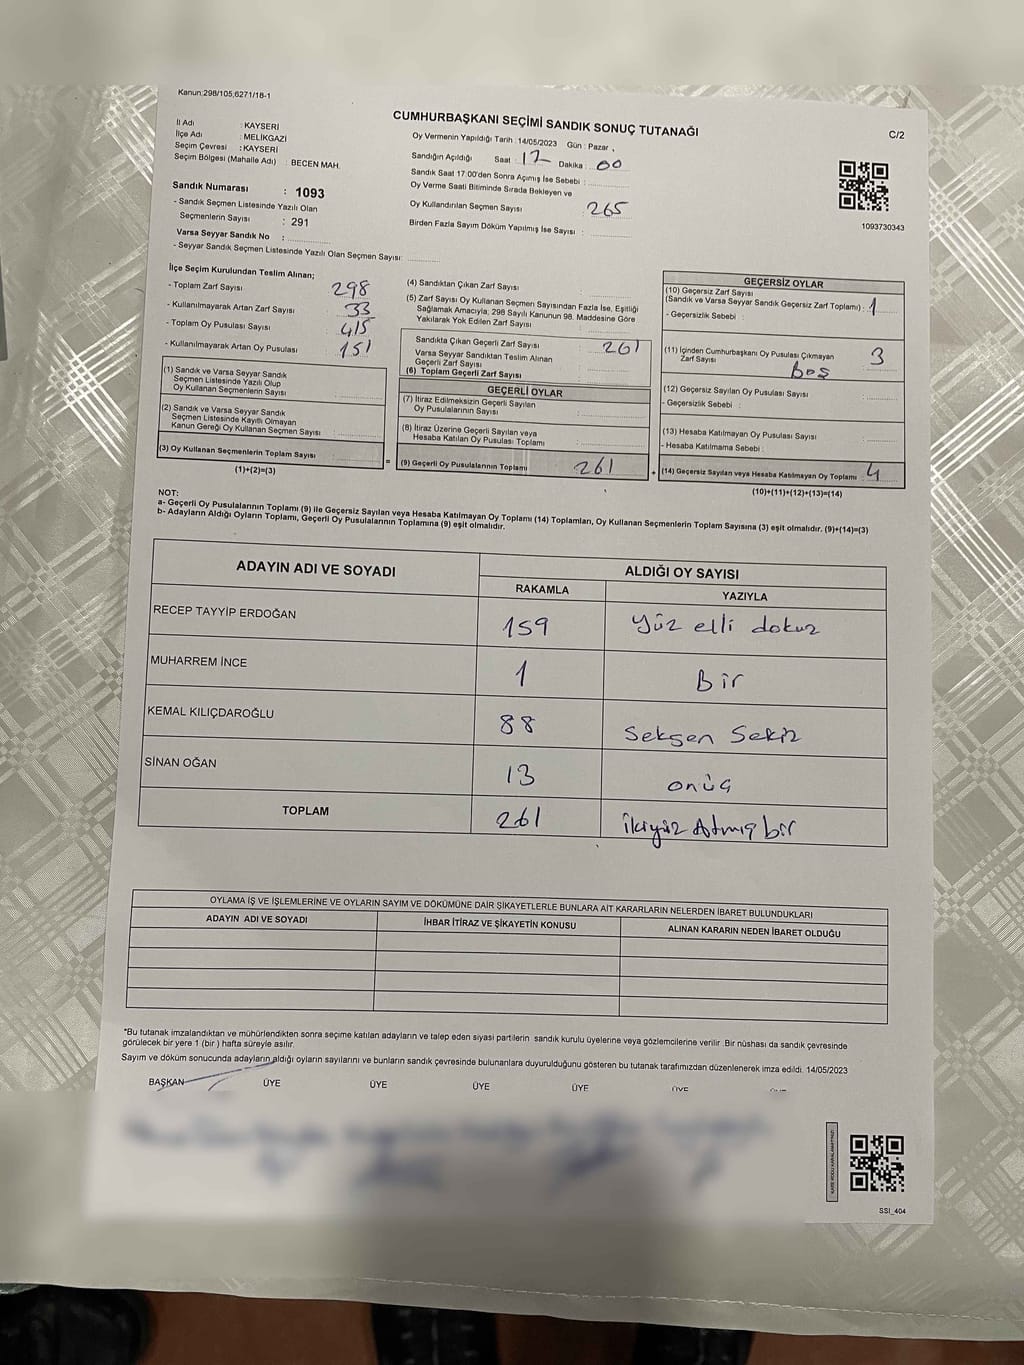 Kanun:298/105,6271/18-1
CUMHURBAŞKANI SEÇİMİ SANDIK SONUÇ TUTANAĞI
C/2
İl Adı : KAYSERİ
İlçe Adı : MELİKGAZİ
Seçim Çevresi : KAYSERİ
Seçim Bölgesi (Mahalle Adı) : BECEN MAH.
Sandık Numarası : 1093
- Sandık Seçmen Listesinde Yazılı Olan
Seçmenlerin Sayısı : 291
Varsa Seyyar Sandık No :
- Seyyar Sandık Seçmen Listesinde Yazılı Olan Seçmen Sayısı:
Oy Vermenin Yapıldığı Tarih : 14/05/2023 Gün : Pazar
Sandığın Açıldığı Saat : 17 Dakika : 00
Sandık Saat 17:00'den Sonra Açımış İse Sebebi :
Oy Verme Saati Bitiminde Sırada Bekleyen ve
Oy Kullandırılan Seçmen Sayısı 265
Birden Fazla Sayım Döküm Yapılmış İse Sayısı :
1093730343
İlçe Seçim Kurulundan Teslim Alınan;
- Toplam Zarf Sayısı 298
- Kullanılmayarak Artan Zarf Sayısı 33
- Toplam Oy Pusulası Sayısı 415
- Kullanılmayarak Artan Oy Pusulası 151
(1) Sandık ve Varsa Seyyar Sandık
Seçmen Listesinde Yazılı Olup
Oy Kullanan Seçmenlerin Sayısı
(2) Sandık ve Varsa Seyyar Sandık
Seçmen Listesinde Kayıtlı Olmayan
Kanun Gereği Oy Kullanan Seçmen Sayısı
(3) Oy Kullanan Seçmenlerin Toplam Sayısı
(1)+(2)=(3)
=
(4) Sandıktan Çıkan Zarf Sayısı
(5) Zarf Sayısı Oy Kullanan Seçmen Sayısından Fazla İse, Eşitliği
Sağlamak Amacıyla; 298 Sayılı Kanunun 98. Maddesine Göre
Yakılarak Yok Edilen Zarf Sayısı
Sandıkta Çıkan Geçerli Zarf Sayısı : 261
Varsa Seyyar Sandıktan Teslim Alınan
Geçerli Zarf Sayısı
(6) Toplam Geçerli Zarf Sayısı
GEÇERLİ OYLAR
(7) İtiraz Edilmeksizin Geçerli Sayılan
Oy Pusulalarının Sayısı
(8) İtiraz Üzerine Geçerli Sayılan veya
Hesaba Katılan Oy Pusulası Toplamı
(9) Geçerli Oy Pusulalarının Toplamı 261
+
GEÇERSİZ OYLAR
(10) Geçersiz Zarf Sayısı
(Sandık ve Varsa Seyyar Sandık Geçersiz Zarf Toplamı) : 1
- Geçersizlik Sebebi :
(11) İçinden Cumhurbaşkanı Oy Pusulası Çıkmayan
Zarf Sayısı 3
Boş
(12) Geçersiz Sayılan Oy Pusulası Sayısı
- Geçersizlik Sebebi :
(13) Hesaba Katılmayan Oy Pusulası Sayısı
- Hesaba Katılmama Sebebi :
(14) Geçersiz Sayılan veya Hesaba Katılmayan Oy Toplamı : 4
(10)+(11)+(12)+(13)=(14)
NOT:
a- Geçerli Oy Pusulalarının Toplamı (9) ile Geçersiz Sayılan veya Hesaba Katılmayan Oy Toplamı (14) Toplamları, Oy Kullanan Seçmenlerin Toplam Sayısına (3) eşit olmalıdır. (9)+(14)=(3)
b- Adayların Aldığı Oyların Toplamı, Geçerli Oy Pusulalarının Toplamına (9) eşit olmalıdır.
ADAYIN ADI VE SOYADI
ALDIĞI OY SAYISI
RAKAMLA YAZIYLA
RECEP TAYYİP ERDOĞAN 159 Yüz elli dokuz
MUHARREM İNCE 1 Bir
KEMAL KILIÇDAROĞLU 88 Seksen Sekiz
SİNAN OĞAN 13 onüç
TOPLAM 261 ikiyüz Atmış bir
OYLAMA İŞ VE İŞLEMLERİNE VE OYLARIN SAYIM VE DÖKÜMÜNE DAİR ŞİKAYETLERLE BUNLARA AİT KARARLARIN NELERDEN İBARET BULUNDUKLARI
ADAYIN ADI VE SOYADI İHBAR İTİRAZ VE ŞİKAYETİN KONUSU ALINAN KARARIN NEDEN İBARET OLDUĞU
*Bu tutanak imzalandıktan ve mühürlendikten sonra seçime katılan adayların ve talep eden siyasi partilerin sandık kurulu üyelerine veya gözlemcilerine verilir. Bir nüshası da sandık çevresinde
görülecek bir yere 1 (bir ) hafta süreyle asılır.
Sayım ve döküm sonucunda adayların aldığı oyların sayılarını ve bunların sandık çevresinde bulunanlara duyurulduğunu gösteren bu tutanak tarafımızdan düzenlenerek imza edildi. 14/05/2023
BAŞKAN ÜYE ÜYE ÜYE ÜYE ÜYE
SSI_404